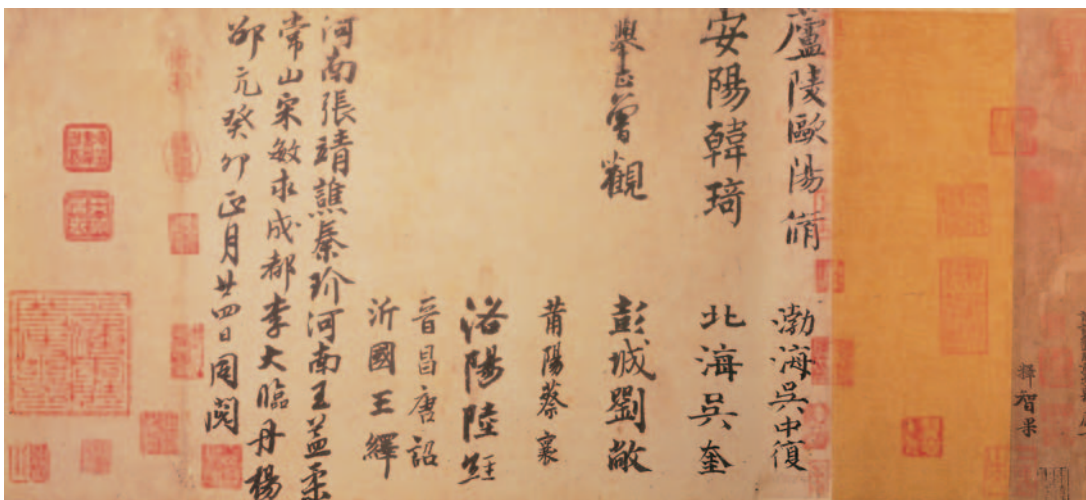 釋智果
廬陵歐陽脩
渤海吳中復
安陽韓琦
北海吳奎
舉正曾觀
彭城劉敞
莆陽蔡襄
洛陽陸經
晉昌唐詔
沂國王繹
河南張靖譙秦玠河南王益柔
常山宋敏求成都李大臨丹楊
邵亢癸卯正月廿四日同閱